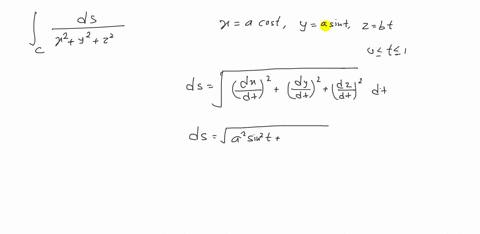 ∫_C ds / (x² + y² + z²)    x = a cost, y = a sint, z = bt
0 ≤ t ≤ 1
ds = √((dx/dt)² + (dy/dt)² + (dz/dt)²) dt
ds = √(a² sin² t +